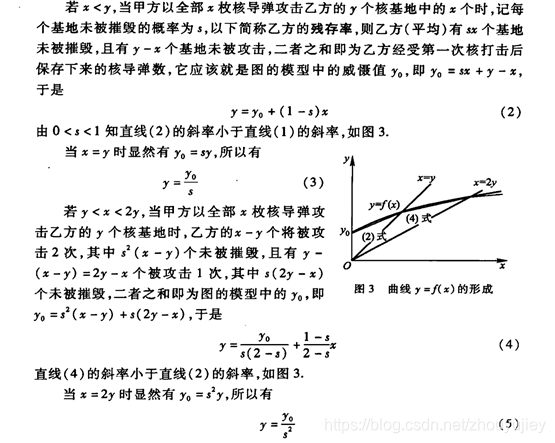 若 x<y,当甲方以全部 x 枚核导弹攻击乙方的 y 个核基地中的 x 个时,记每
个基地未被摧毁的概率为 s,以下简称乙方的残存率,则乙方(平均)有 sx 个基地
未被摧毁,且有 y-x 个基地未被攻击,二者之和即为乙方经受第一次核打击后
保存下来的核导弹数,它应该就是图的模型中的威慑值 y₀,即 y₀ = sx + y - x,
于是
y = y₀ + (1 - s)x (2)
由 0<s<1 知直线(2)的斜率小于直线(1)的斜率,如图 3.
当 x=y 时显然有 y₀ = sy,所以有
y = y₀/s (3)
若 y<x<2y,当甲方以全部 x 枚核导弹攻
击乙方的 y 个核基地时,乙方的 x-y 个将被攻
击 2 次,其中 s²(x-y)个未被摧毁,且有 y-
(x-y)=2y-x 个被攻击 1 次,其中 s(2y-x)
个未被摧毁,二者之和即为图的模型中的 y₀,即
y₀ = s²(x-y) + s(2y-x),于是
y
x=y
x=2y
y=f(x)
(4) 式
y₀
(2) 式
O
x
图 3 曲线 y=f(x)的形成
y = y₀/(s(2-s)) + (1-s)/(2-s) x (4)
直线(4)的斜率小于直线(2)的斜率,如图 3.
当 x=2y 时显然有 y₀ = s²y,所以有
y = y₀/s² (5)